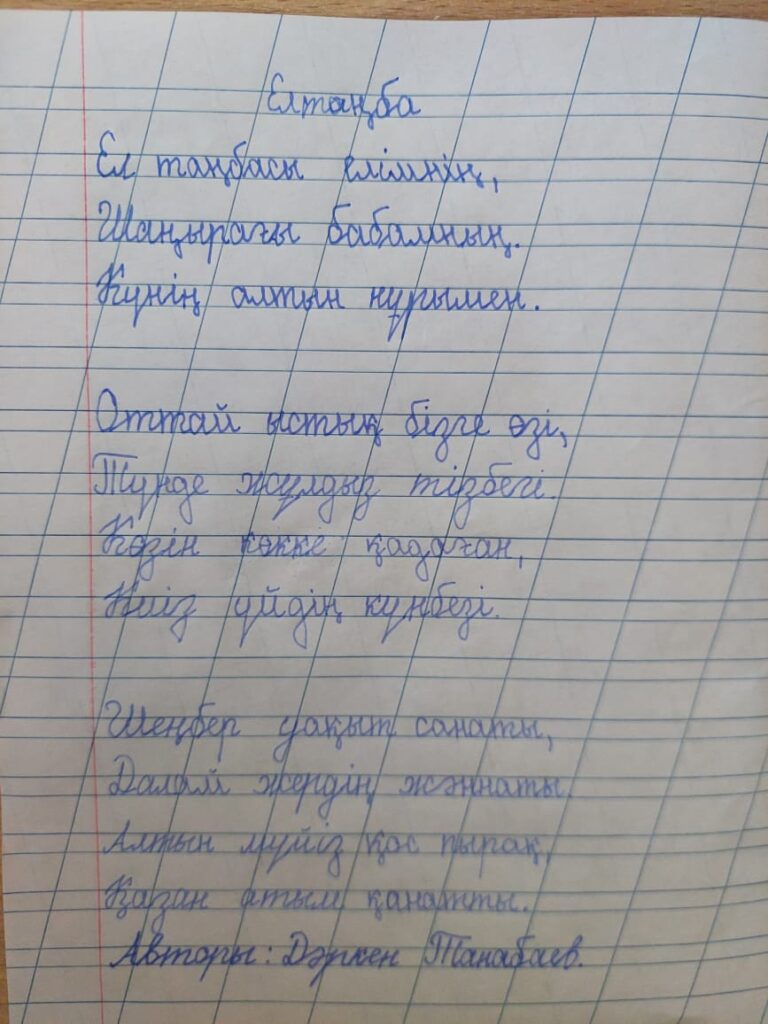 Елтаңба
Ел таңбасы елімнің,
Шаңырағы бабамның.
Күнің алтын нұрымен.
Оттай ыстық бізге өзі,
Түнде жұлдыз тізбегі.
Көзін көкке қадаған,
Киіз үйдің күнбезі.
Шеңбер уақыт санаты,
Далам жердің жәннаты.
Алтын мүйіз қос пырақ,
Қазан атым қанатты.
Авторы: Дәркен Танабаев.